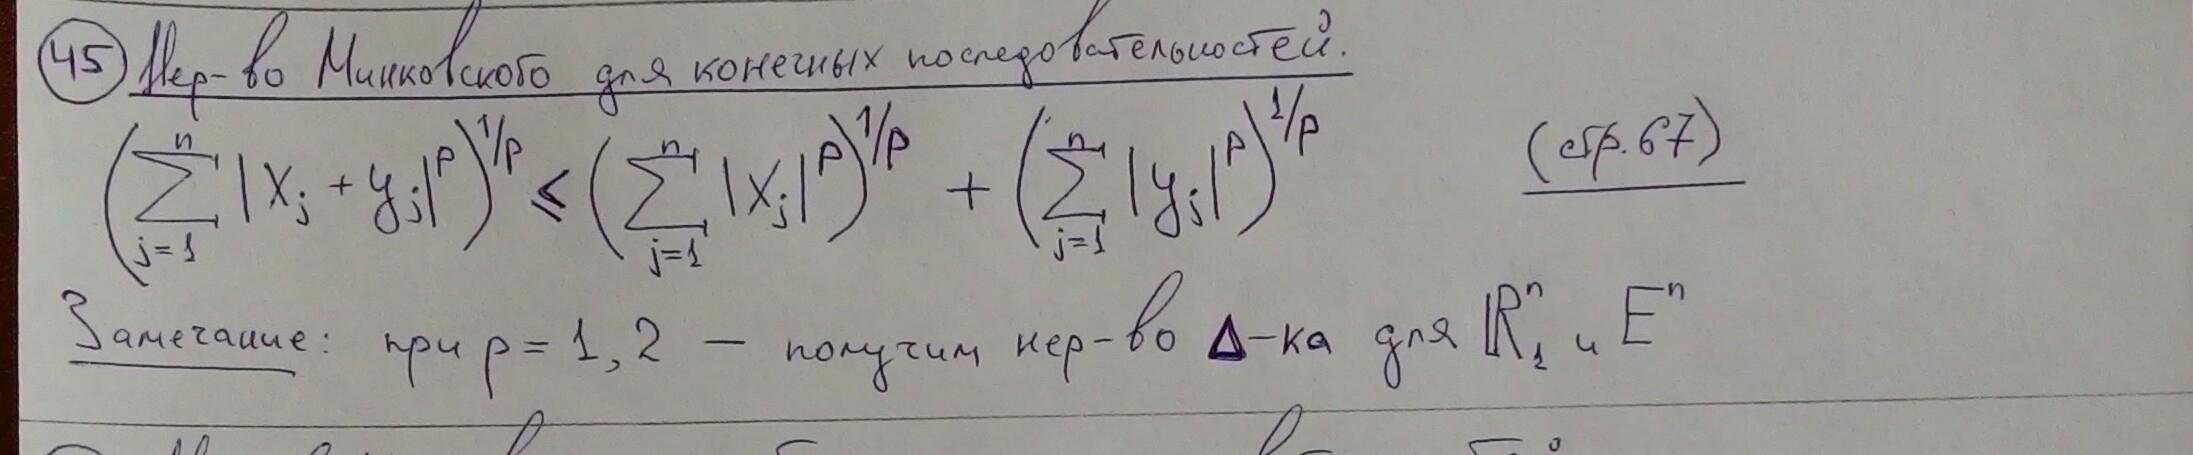 45 Нер-во Минковского для конечных последовательностей.
(∑_{j=1}^{n} |x_j + y_j|^p)^{1/p} ≤ (∑_{j=1}^{n} |x_j|^p)^{1/p} + (∑_{j=1}^{n} |y_j|^p)^{1/p} (стр. 67)
Замечание: при p = 1, 2 — получим нер-во Δ-ка для ℝ^n_1 и E^n